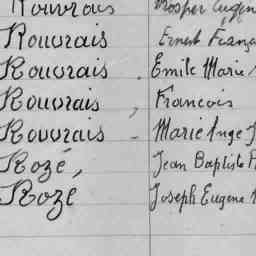 Rouvrais Prosper Eugène
Rouvrais Ernest França
Rouvrais, Emile Marie
Rouvrais, Francois
Rouvrais - Marie Ange J
Rozé, Jean Baptiste P
Rozé Joseph Eugene